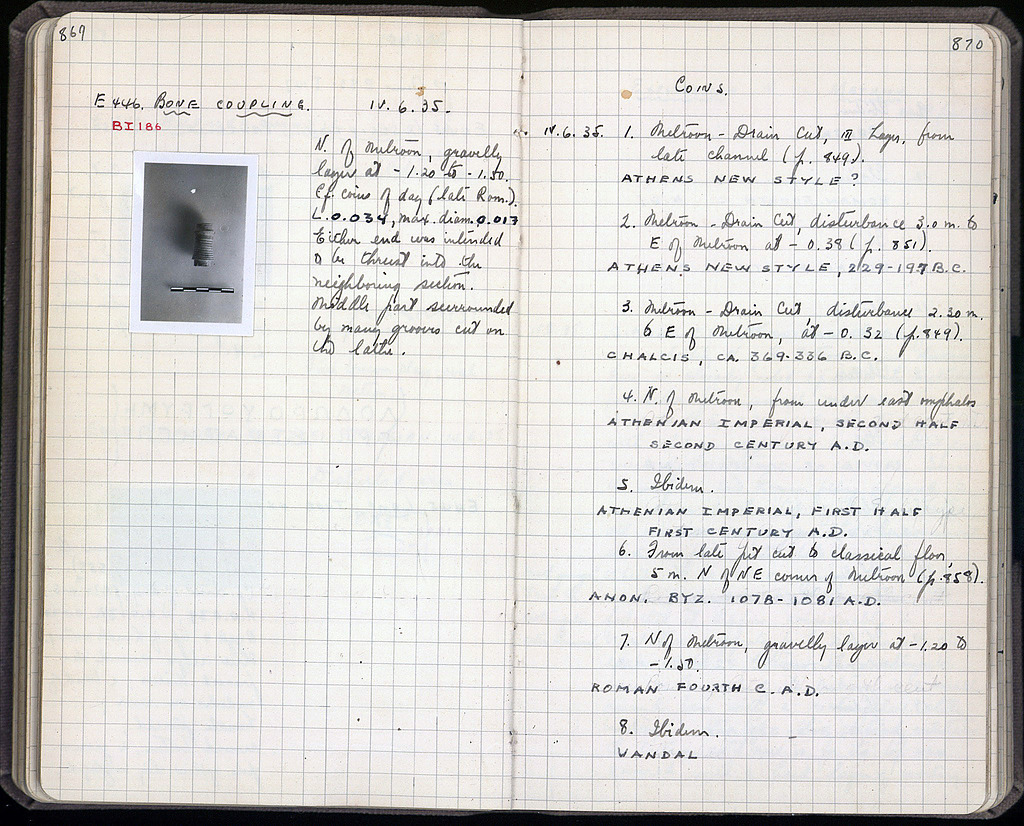 869
E 446. BONE COUPLING. IV. 6. 35.
BI 186
N. of Metroon, gravelly
layer at -1.20 to -1.50.
Cf. coins of day (late Rom.).
L. 0.034, max. diam. 0.013
Either end was intended
to be thrust into the
neighboring section.
Middle part surrounded
by many grooves cut on
the lathe.
870
COINS.
IV. 6. 35. 1. Metroon - Drain Cut, III Layer, from
late channel (p. 849).
ATHENS NEW STYLE?
2. Metroon - Drain Cut, disturbance 3.0 m. to
E of Metroon at -0.38 (p. 851).
ATHENS NEW STYLE, 229-197 B.C.
3. Metroon - Drain Cut, disturbance 2.30 m.
to E of Metroon, at -0.32 (p. 849).
CHALCIS, CA. 369-336 B.C.
4. N. of Metroon, from under east omphalos
ATHENIAN IMPERIAL, SECOND HALF
SECOND CENTURY A.D.
5. Ibidem.
ATHENIAN IMPERIAL, FIRST HALF
FIRST CENTURY A.D.
6. From late pit cut to classical floor,
5 m. N of NE corner of Metroon (p. 858).
ANON. BYZ. 1078-1081 A.D.
7. N of Metroon, gravelly layer at -1.20 to
-1.50.
ROMAN FOURTH C. A.D.
8. Ibidem.
VANDAL